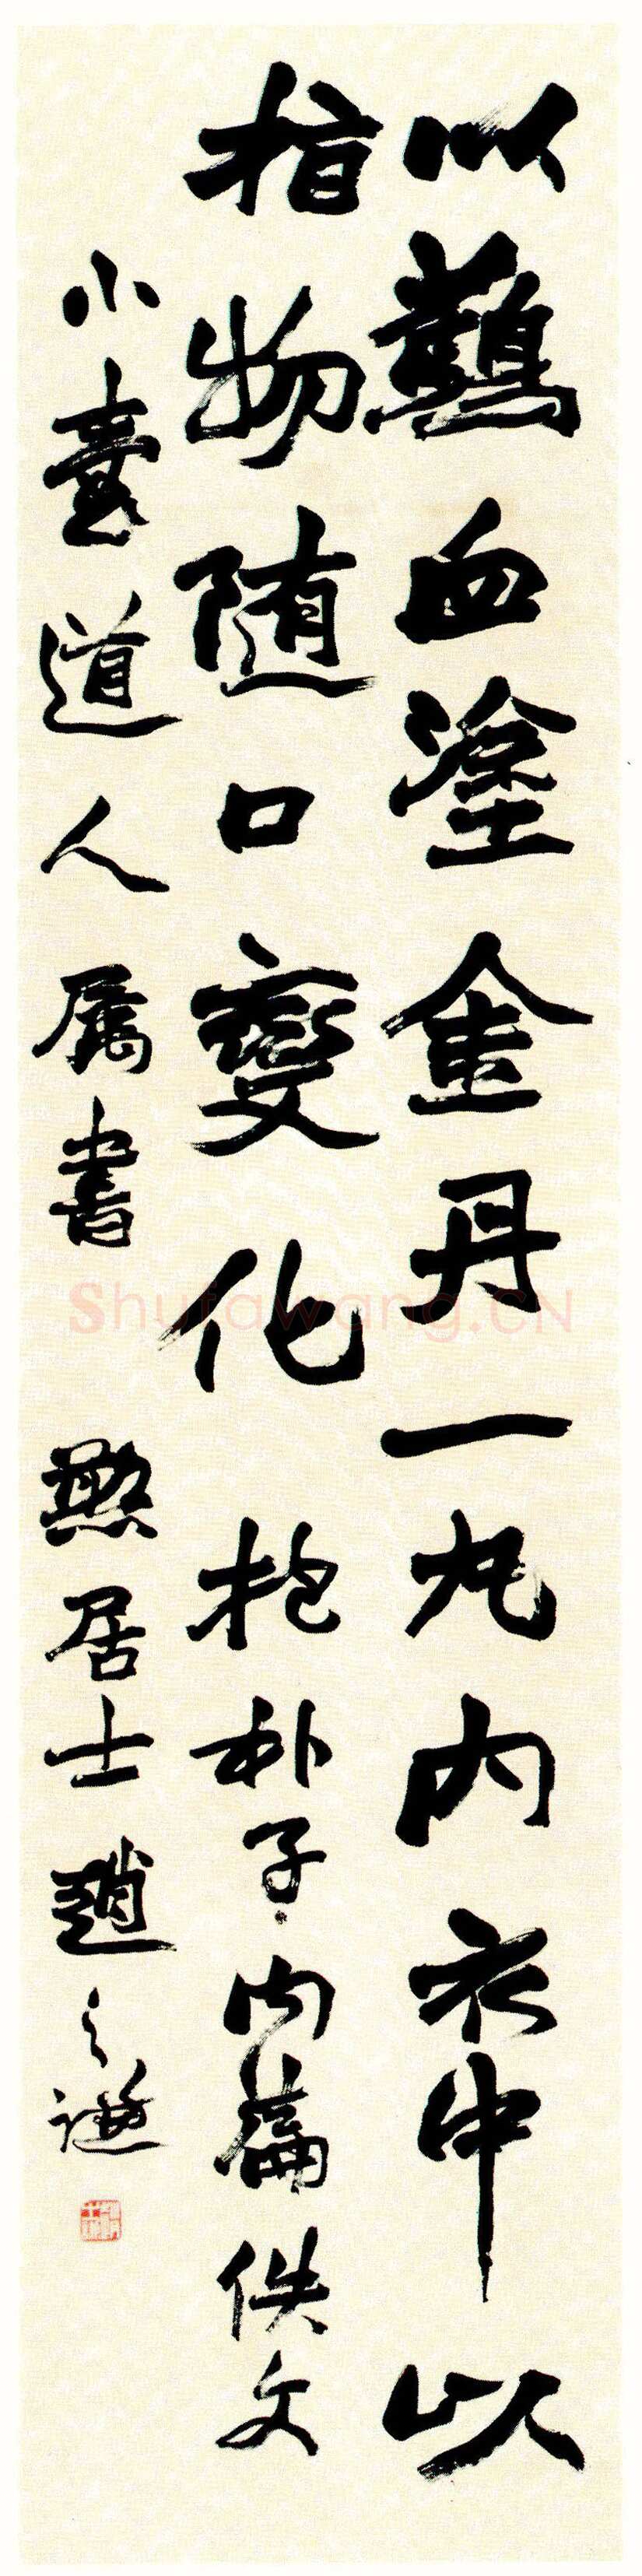 以鷬血塗金丹一丸内衣中以
指物随口變化 抱朴子内篇佚文
小橐道人属書 憨居士趙之謙
Shufawang.CN